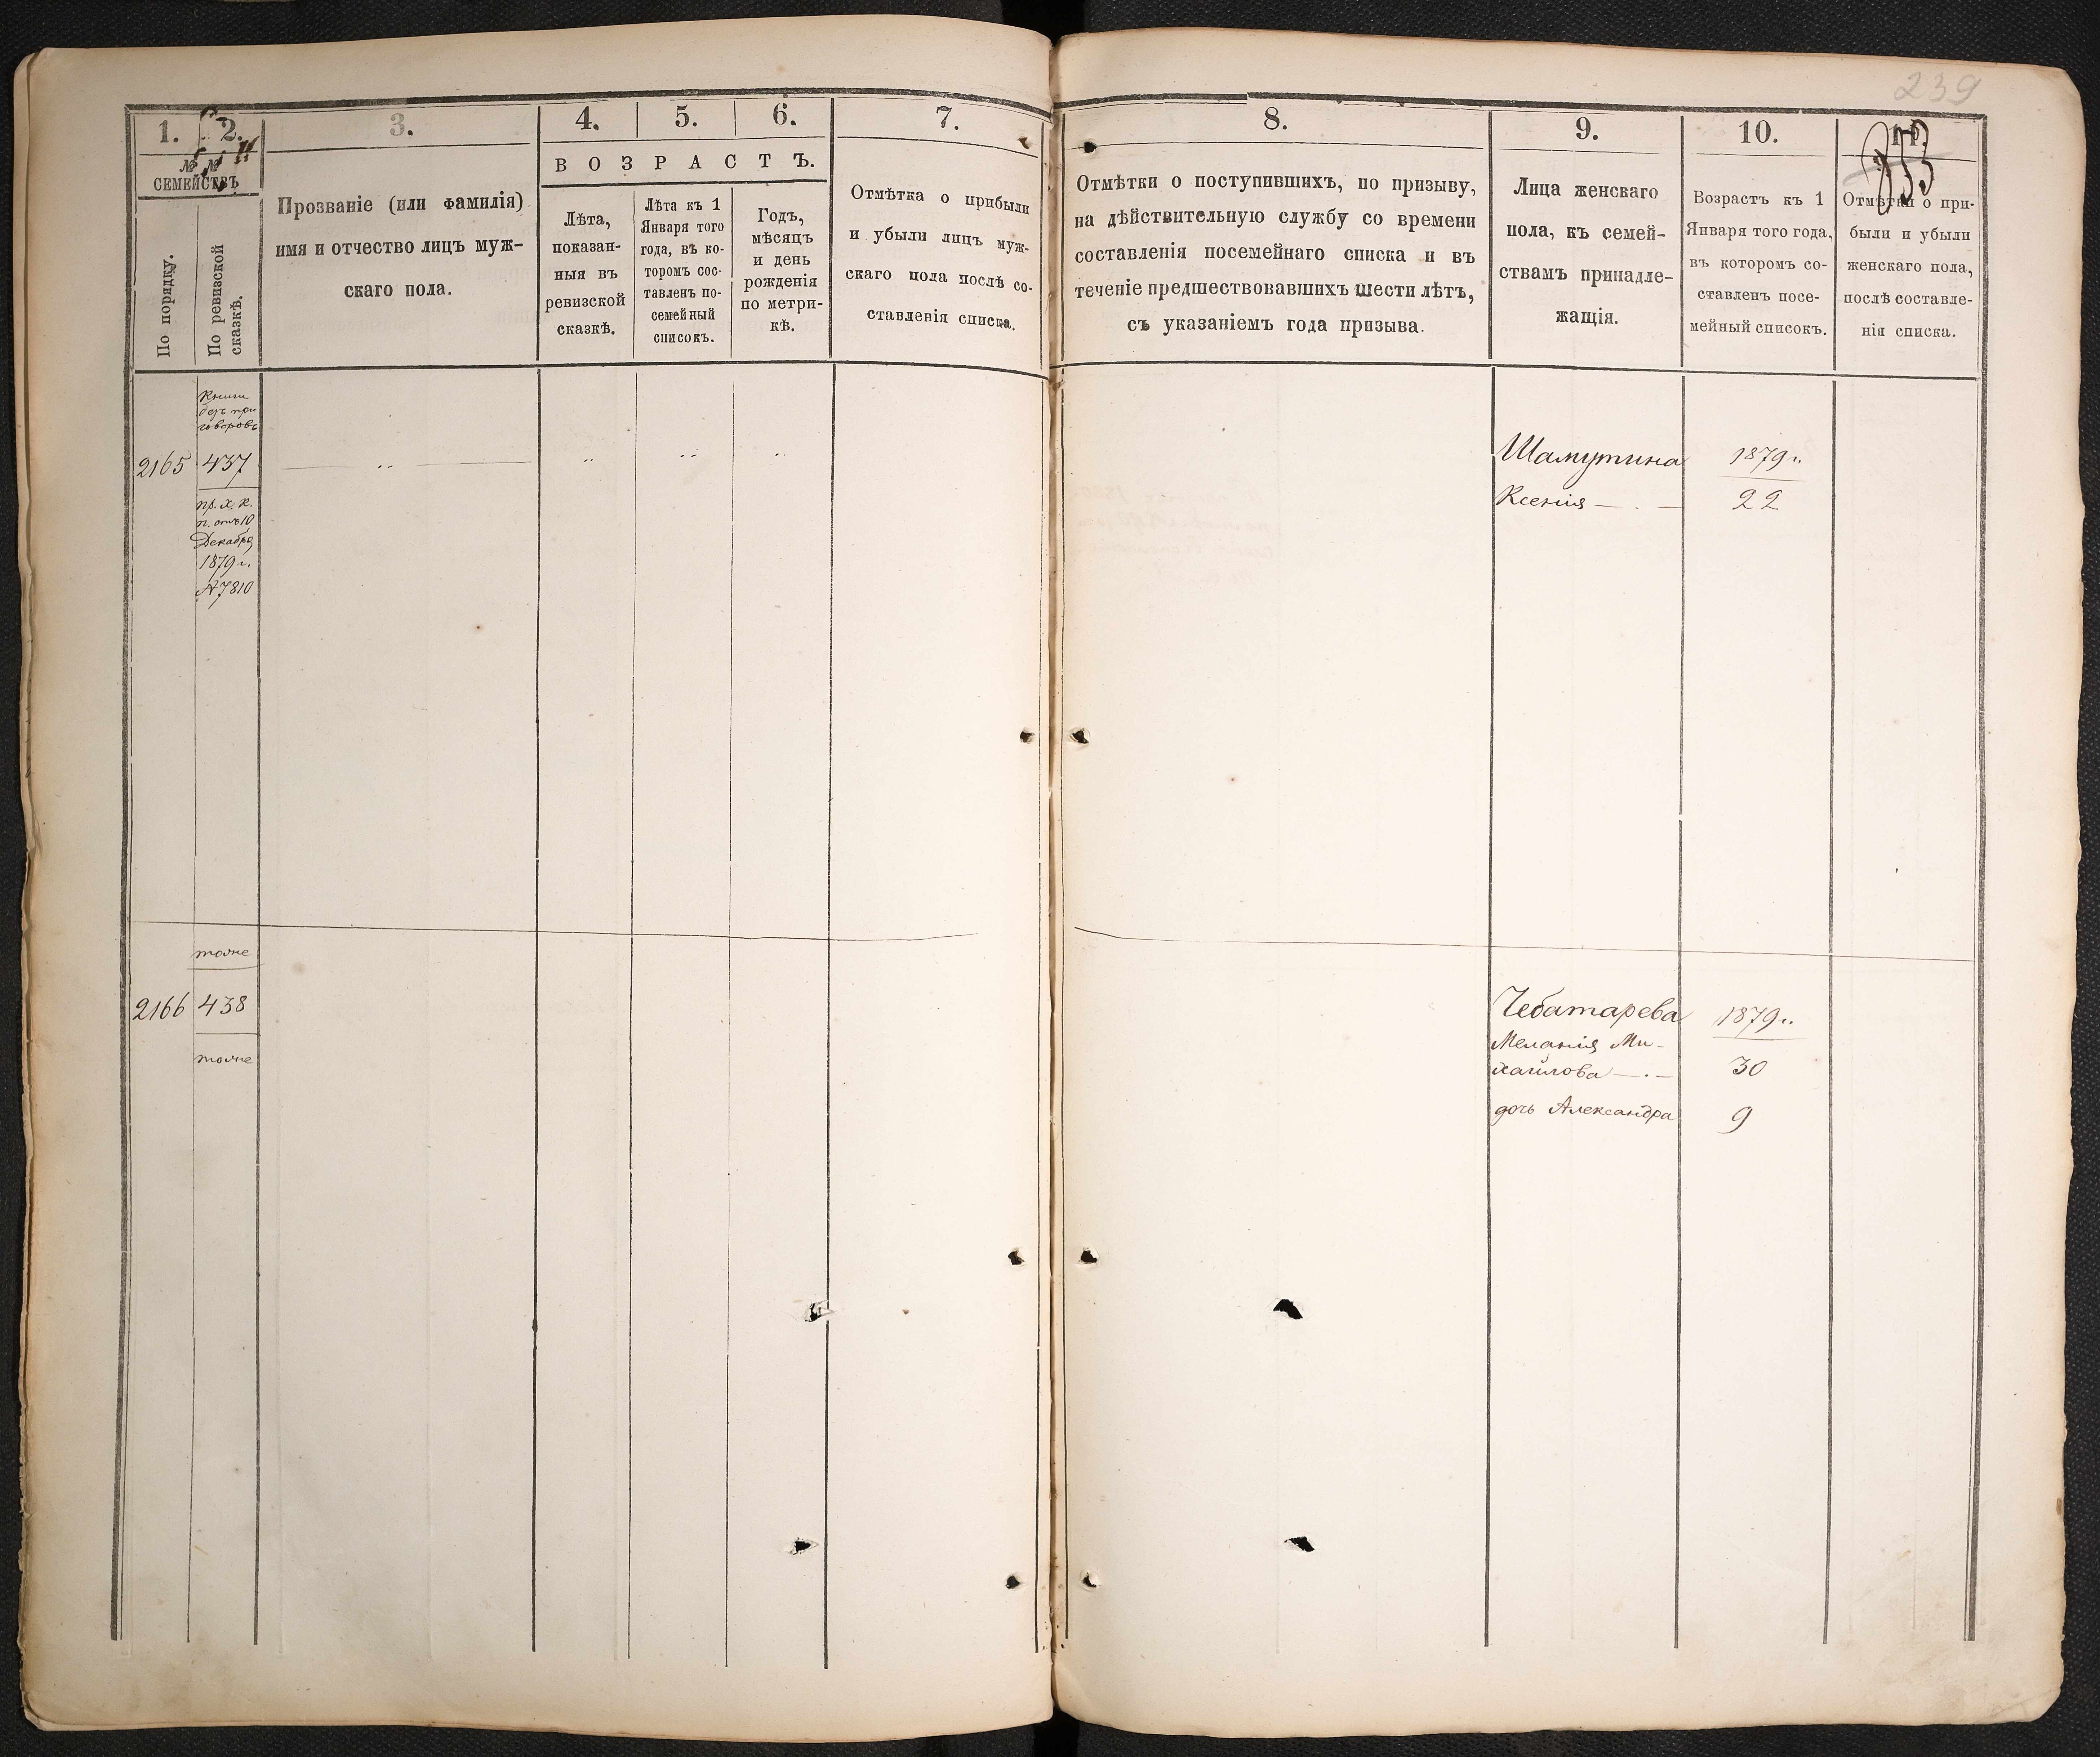 239
853
1.
2.
3.
4.
5.
6.
7.
8.
9.
10.
11.
№ №
СЕМЕЙСТВЪ
По порядку.
По ревизской
сказкѣ.
Прозваніе (или фамилія)
имя и отчество лицъ муж-
скаго пола.
ВОЗРАСТЪ.
Лѣта,
показан-
ныя въ
ревизской
сказкѣ.
Лѣта къ 1
Января того
года, въ ко-
торомъ сос-
тавленъ по-
семейный
списокъ.
Годъ,
мѣсяцъ
и день
рожденія
по метри-
кѣ.
Отмѣтка о прибыли
и убыли лицъ муж-
скаго пола послѣ со-
ставленія списка.
Отмѣтки о поступившихъ, по призыву,
на дѣйствительную службу со времени
составленія посемейнаго списка и въ
теченіе предшествовавшихъ шести лѣтъ,
съ указаніемъ года призыва.
Лица женскаго
пола, къ семей-
ствамъ принадле-
жащія.
Возрастъ къ 1
Января того года,
въ которомъ со-
ставленъ посе-
мейный списокъ.
Отмѣтки о при-
были и убыли
женскаго пола,
послѣ составле-
нія списка.
Книги
безъ при
говоровъ
2165 437
пр. х. к.
п. отъ 10
Декабря
1879 г.
№ 7810
Шамутина 1879 г.
Ксенія 22
тоже
2166 438
тоже
Чебатарева 1879 г.
Меланія Ми-
хайлова 30
дочь Александра 9